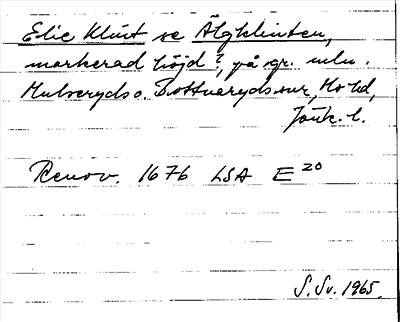 Elie Klint se Älgklinten,
markerad höjd?, på gr. mln.
Hulseryds o. Bottnaryds snr, Mo hd,
Jönk. l.
Renov. 1676 LSA E 20
S. Sv. 1965.